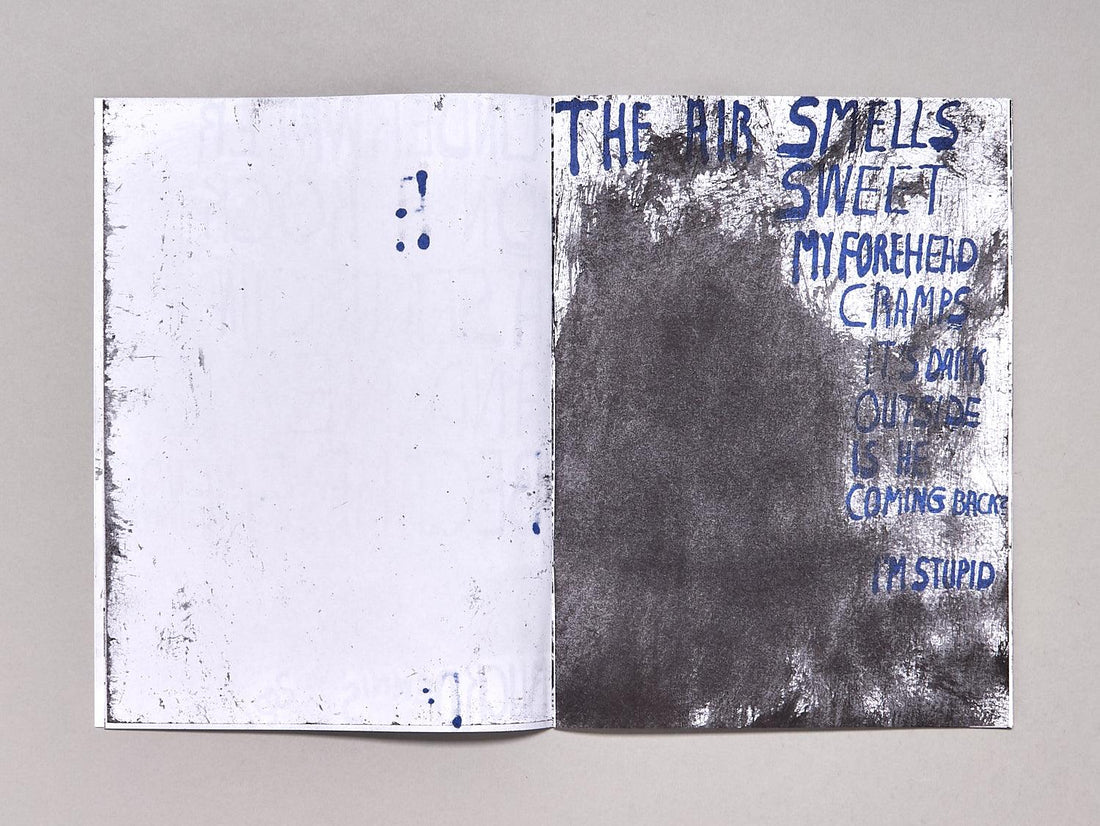 THE AIR SMELLS
SWEET
MY FOREHEAD
CRAMPS
ITS DARK
OUTSIDE
IS HE
COMING BACK?
I'M STUPID